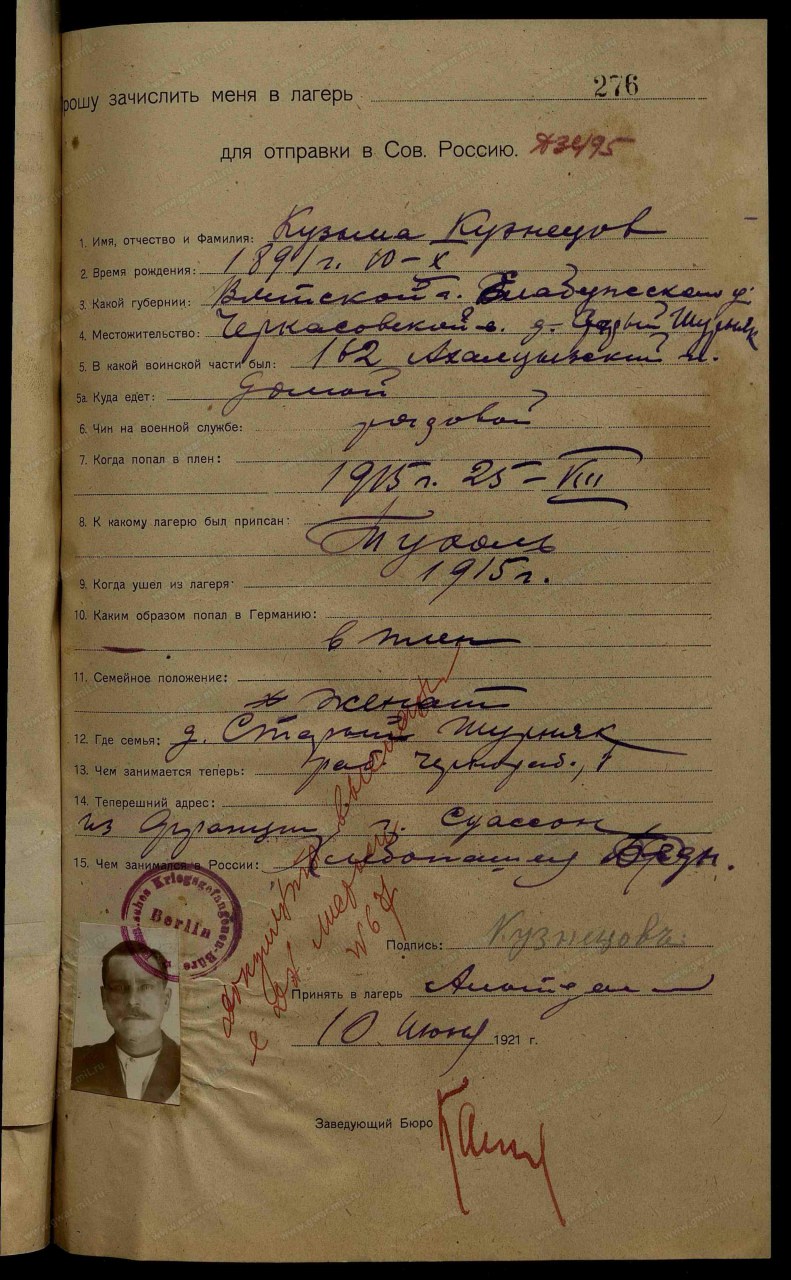 рошу зачислить меня в лагерь 276
для отправки в Сов. Россию. 3495
1. Имя, отчество и Фамилия: Кузьма Кузнецов
2. Время рождения: 1891 г. 10-X
3. Какой губернии: Вятской г. Елабужского у.
4. Местожительство: Черкасовской в. д. Старый Шурняк
5. В какой воинской части был: 162 Ахалцыхский п.
5а. Куда едет: домой
6. Чин на военной службе: рядовой
7. Когда попал в плен:
1915 г. 25-VIII
8. К какому лагерю был припсан:
Тухоль
9. Когда ушел из лагеря: 1915 г.
10. Каким образом попал в Германию:
в плен
11. Семейное положение:
женат
12. Где семья: д. Старый Шурняк
13. Чем занимается теперь: раб.
14. Теперешний адрес:
из Франции г. Суассон
15. Чем занимался в России: Хлебопашец
Kriegsgefangenen-Büro
Berlin
лагерь
Подпись: Кузнецовъ
Принять в лагерь
10 июня 1921 г.
Заведующий Бюро